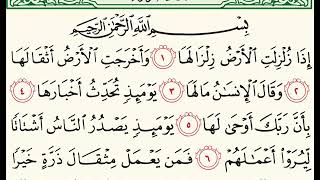 بِسْمِ ٱللَّهِ ٱلرَّحْمَٰنِ ٱلرَّحِيمِ
إِذَا زُلْزِلَتِ ٱلْأَرْضُ زِلْزَالَهَا ١ وَأَخْرَجَتِ ٱلْأَرْضُ أَثْقَالَهَا
٢ وَقَالَ ٱلْإِنسَٰنُ مَا لَهَا ٣ يَوْمَئِذٍ تُحَدِّثُ أَخْبَارَهَا ٤
بِأَنَّ رَبَّكَ أَوْحَىٰ لَهَا ٥ يَوْمَئِذٍ يَصْدُرُ ٱلنَّاسُ أَشْتَاتًا
لِّيُرَوْا۟ أَعْمَٰلَهُمْ ٦ فَمَن يَعْمَلْ مِثْقَالَ ذَرَّةٍ خَيْرًا